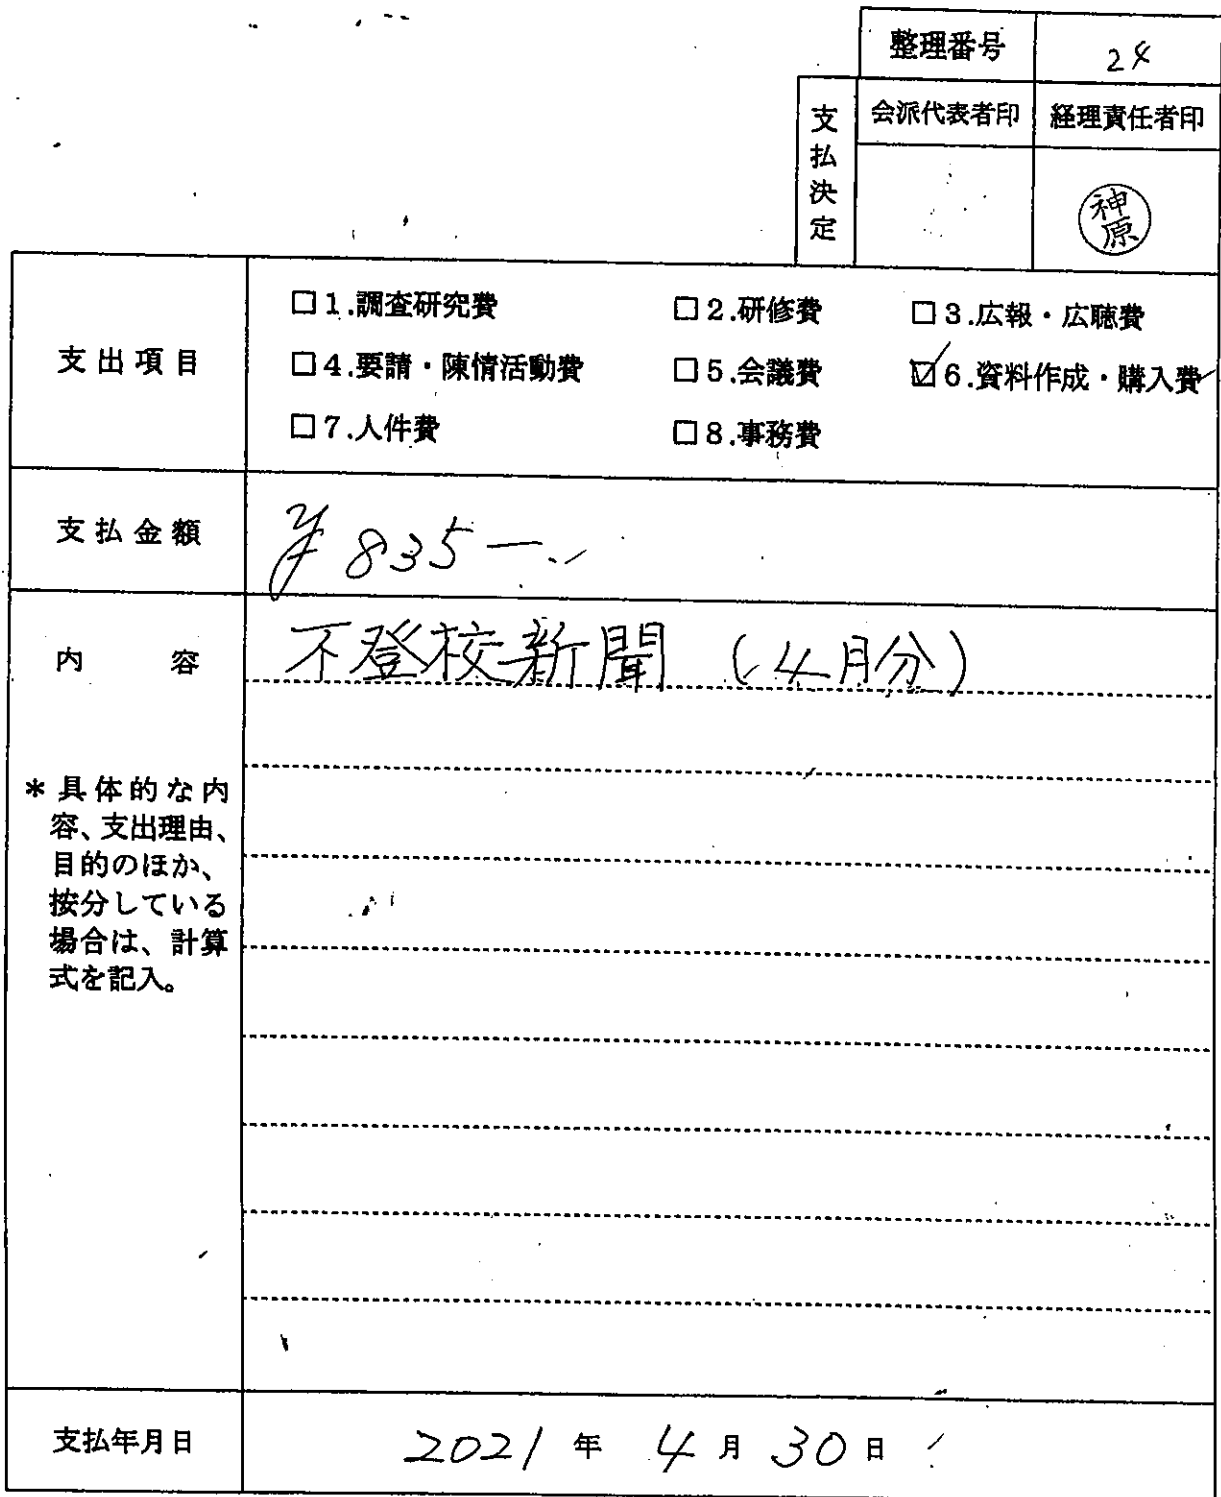 整理番号 24
支払決定 会派代表者印 経理責任者印
神原
支出項目
□1.調査研究費 □2.研修費 □3.広報・広聴費
□4.要請・陳情活動費 □5.会議費 ☑6.資料作成・購入費
□7.人件費 □8.事務費
支払金額 ¥835-
内容 不登校新聞(4月分)
*具体的な内
容、支出理由、
目的のほか、
按分している
場合は、計算
式を記入。
支払年月日 2021年4月30日